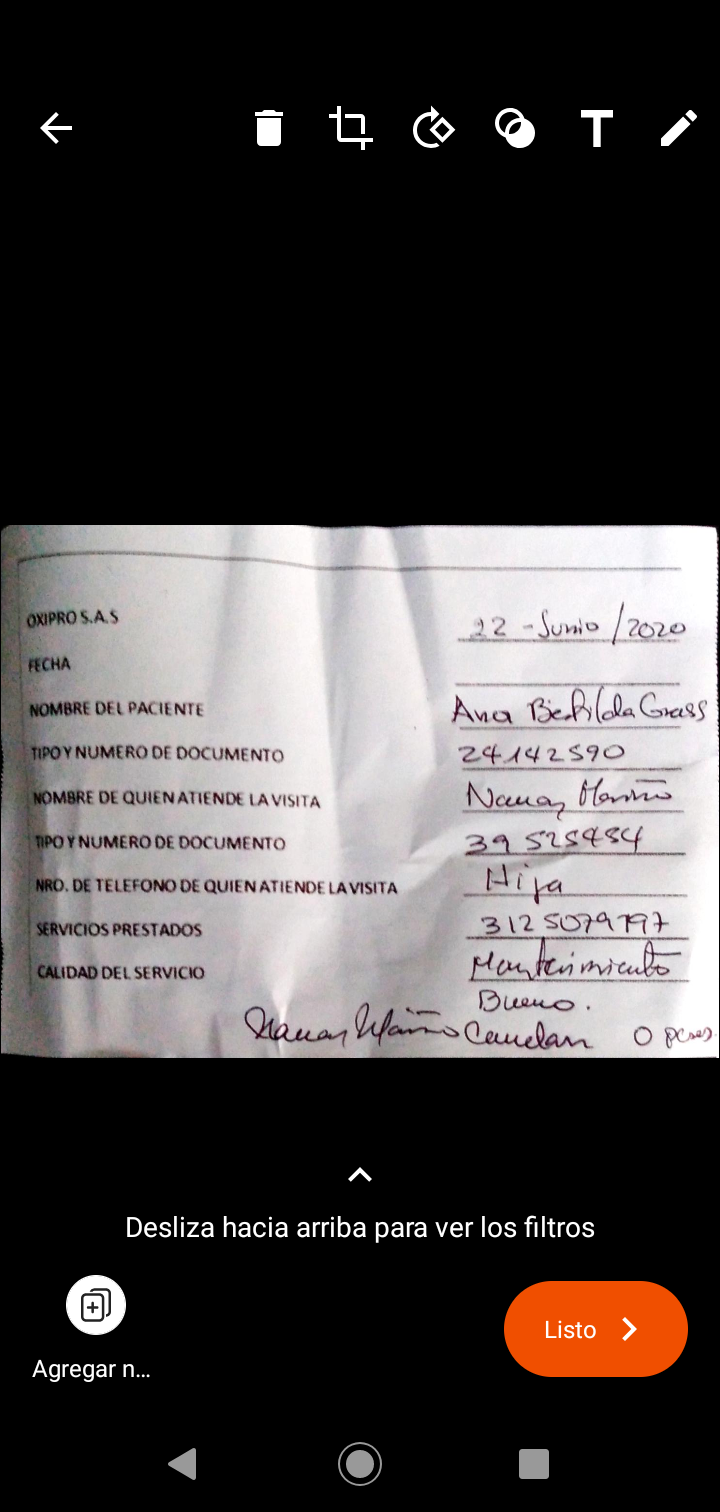 OXIPRO S.A.S
22 - Junio / 2020
FECHA
NOMBRE DEL PACIENTE
Ana Grass
TIPO Y NUMERO DE DOCUMENTO
24142590
NOMBRE DE QUIEN ATIENDE LA VISITA
Nancy Mariño
TIPO Y NUMERO DE DOCUMENTO
39525484
NRO. DE TELEFONO DE QUIEN ATIENDE LA VISITA
Hija
SERVICIOS PRESTADOS
3125079797
CALIDAD DEL SERVICIO
Mantenimiento
Bueno.
Nancy Mariño Cancelan 0 pesos
Desliza hacia arriba para ver los filtros
Agregar n...
Listo